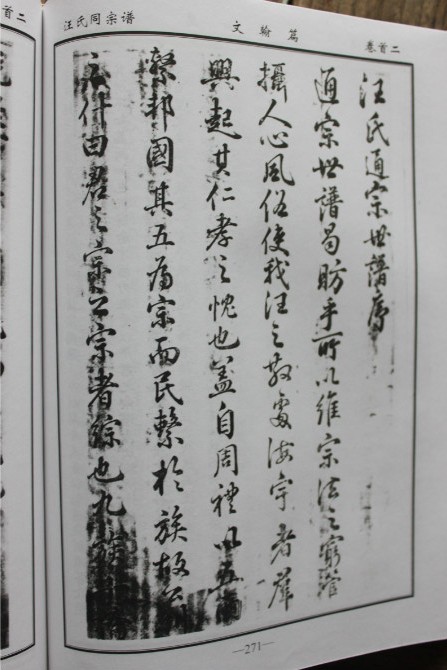 汪氏同宗谱
文翰篇
卷首二
汪氏通宗世譜序
通宗世譜曷昉乎所以維宗法之窮管
攝人心風俗使我汪之散處海宇者羣
興起其仁孝之忱也蓋自周禮以五
繫邦國其五為宗而民繫於族故
曰君之宗之宗者綜也九族
—271—
首二